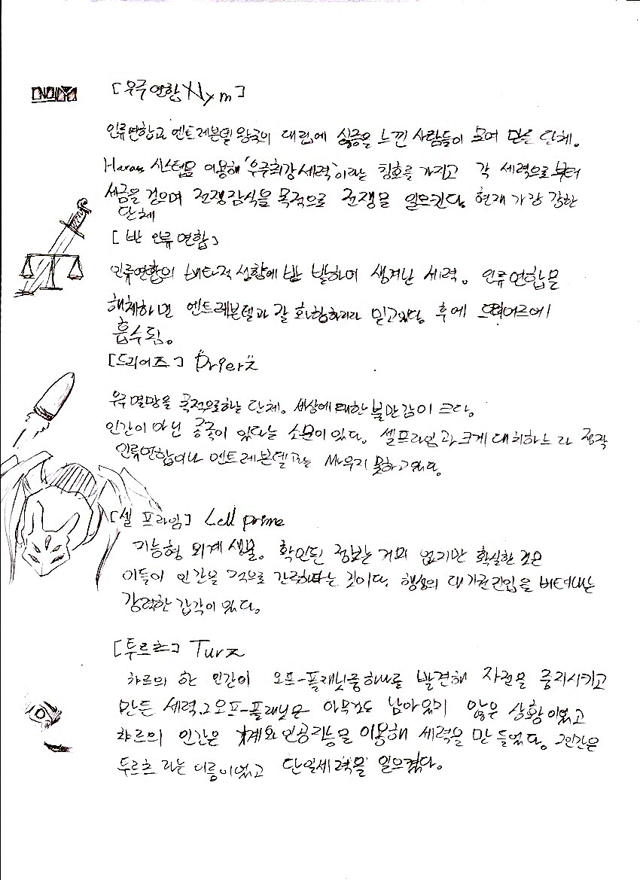 [우주연합 Nym]
인류연합과 엔트레븐델 왕국의 대립에 싫증을 느낀 사람들이 모여 만든 단체.
시스템을 이용해 '우주최강세력'이라는 칭호를 가지고 각 세력으로부터
세금을 걷으며 전쟁감식을 목적으로 전쟁을 일으킨다. 현재 가장 강한
단체
[반 인류연합]
인류연합의 배타적 성향에 반발하며 생겨난 세력. 인류연합을
해체하면 엔트레븐델과 잘 화합하리라 믿고있다. 후에 드리어즈에
흡수됨.
[드리어즈] "Drierz"
우주멸망을 목적으로하는 단체. 세상에 대한 불만감이 크다.
인간이 아닌 종족이 있다는 소문이 있다. 셀프라임과 크게 대치하느라 정작
인류연합이나 엔트레븐델과는 싸우지 못하고있다.
[셀 프라임] Cell prime
지능형 외계생물. 확인된 정보는 거의 없지만 확실한 것은
이들이 인간을 적으로 간주한다는 것이다. 행성의 대기권진입을 버텨내는
강력한 갑각이 있다.
[투르츠] Turz
차르의 한 인간이 오프-플래닛중하나를 발견해 자전을 중지시키고
만든 세력. 그 오프-플래닛은 아무것도 남아있지 않은 상황이었고
차르의 인간은 기계와 인공지능을 이용해 세력을 만들었다. 그인간은
투르츠 라는 이름이었고 단일세력을 일으켰다.